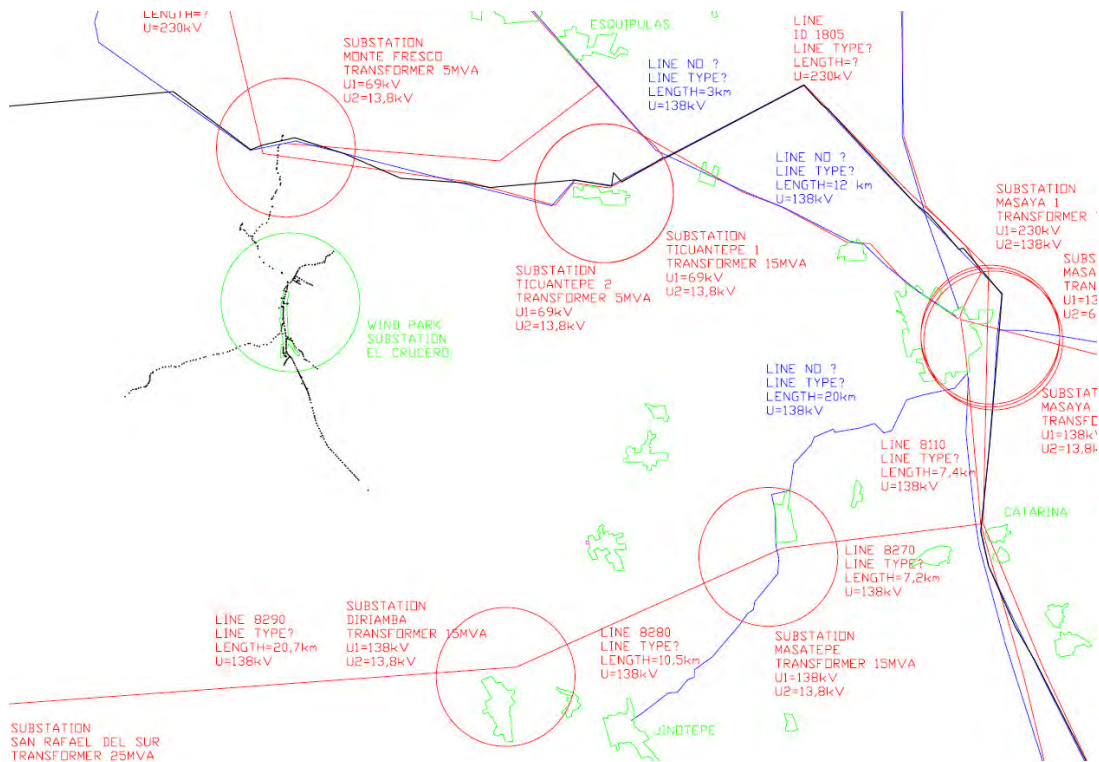 LENGTH=?
U=230kV
SUBSTATION
MONTE FRESCO
TRANSFORMER 5MVA
U1=69kV
U2=13,8kV
ESQUIPULAS
LINE NO ?
LINE TYPE?
LENGTH=3km
U=138kV
LINE
ID 1805
LINE TYPE?
LENGTH=?
U=230kV
LINE NO ?
LINE TYPE?
LENGTH=12 km
U=138kV
SUBSTATION
MASAYA 1
TRANSFORMER
U1=230kV
U2=138kV
SUBSTATION
TICUANTEPE 1
TRANSFORMER 15MVA
U1=69kV
U2=13,8kV
SUBSTATION
TICUANTEPE 2
TRANSFORMER 5MVA
U1=69kV
U2=13,8kV
SUBS
MASA
TRAN
U1=13
U2=6
WIND PARK
SUBSTATION
EL CRUCERO
LINE NO ?
LINE TYPE?
LENGTH=20km
U=138kV
SUBSTAT
MASAYA
TRANSFO
U1=138kV
U2=13,8k
LINE 8110
LINE TYPE?
LENGTH=7,4km
U=138kV
CATARINA
LINE 8270
LINE TYPE?
LENGTH=7,2km
U=138kV
LINE 8290
LINE TYPE?
LENGTH=20,7km
U=138kV
SUBSTATION
DIRIAMBA
TRANSFORMER 15MVA
U1=138kV
U2=13,8kV
LINE 8280
LINE TYPE?
LENGTH=10,5km
U=138kV
SUBSTATION
MASATEPE
TRANSFORMER 15MVA
U1=138kV
U2=13,8kV
JINOTEPE
SUBSTATION
SAN RAFAEL DEL SUR
TRANSFORMER 25MVA